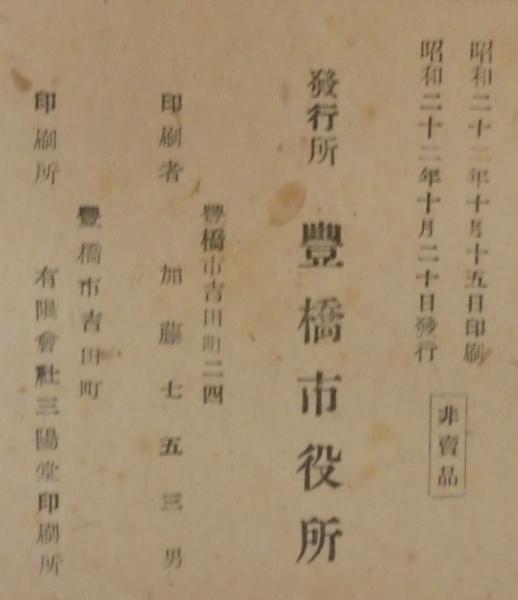 昭和二十二年十月十五日印刷
昭和二十二年十月二十日發行
非賣品
發行所 豐橋市役所
豐橋市吉田町二四
印刷者 加藤七五三男
豐橋市吉田町
印刷所 有限會社三陽堂印刷所